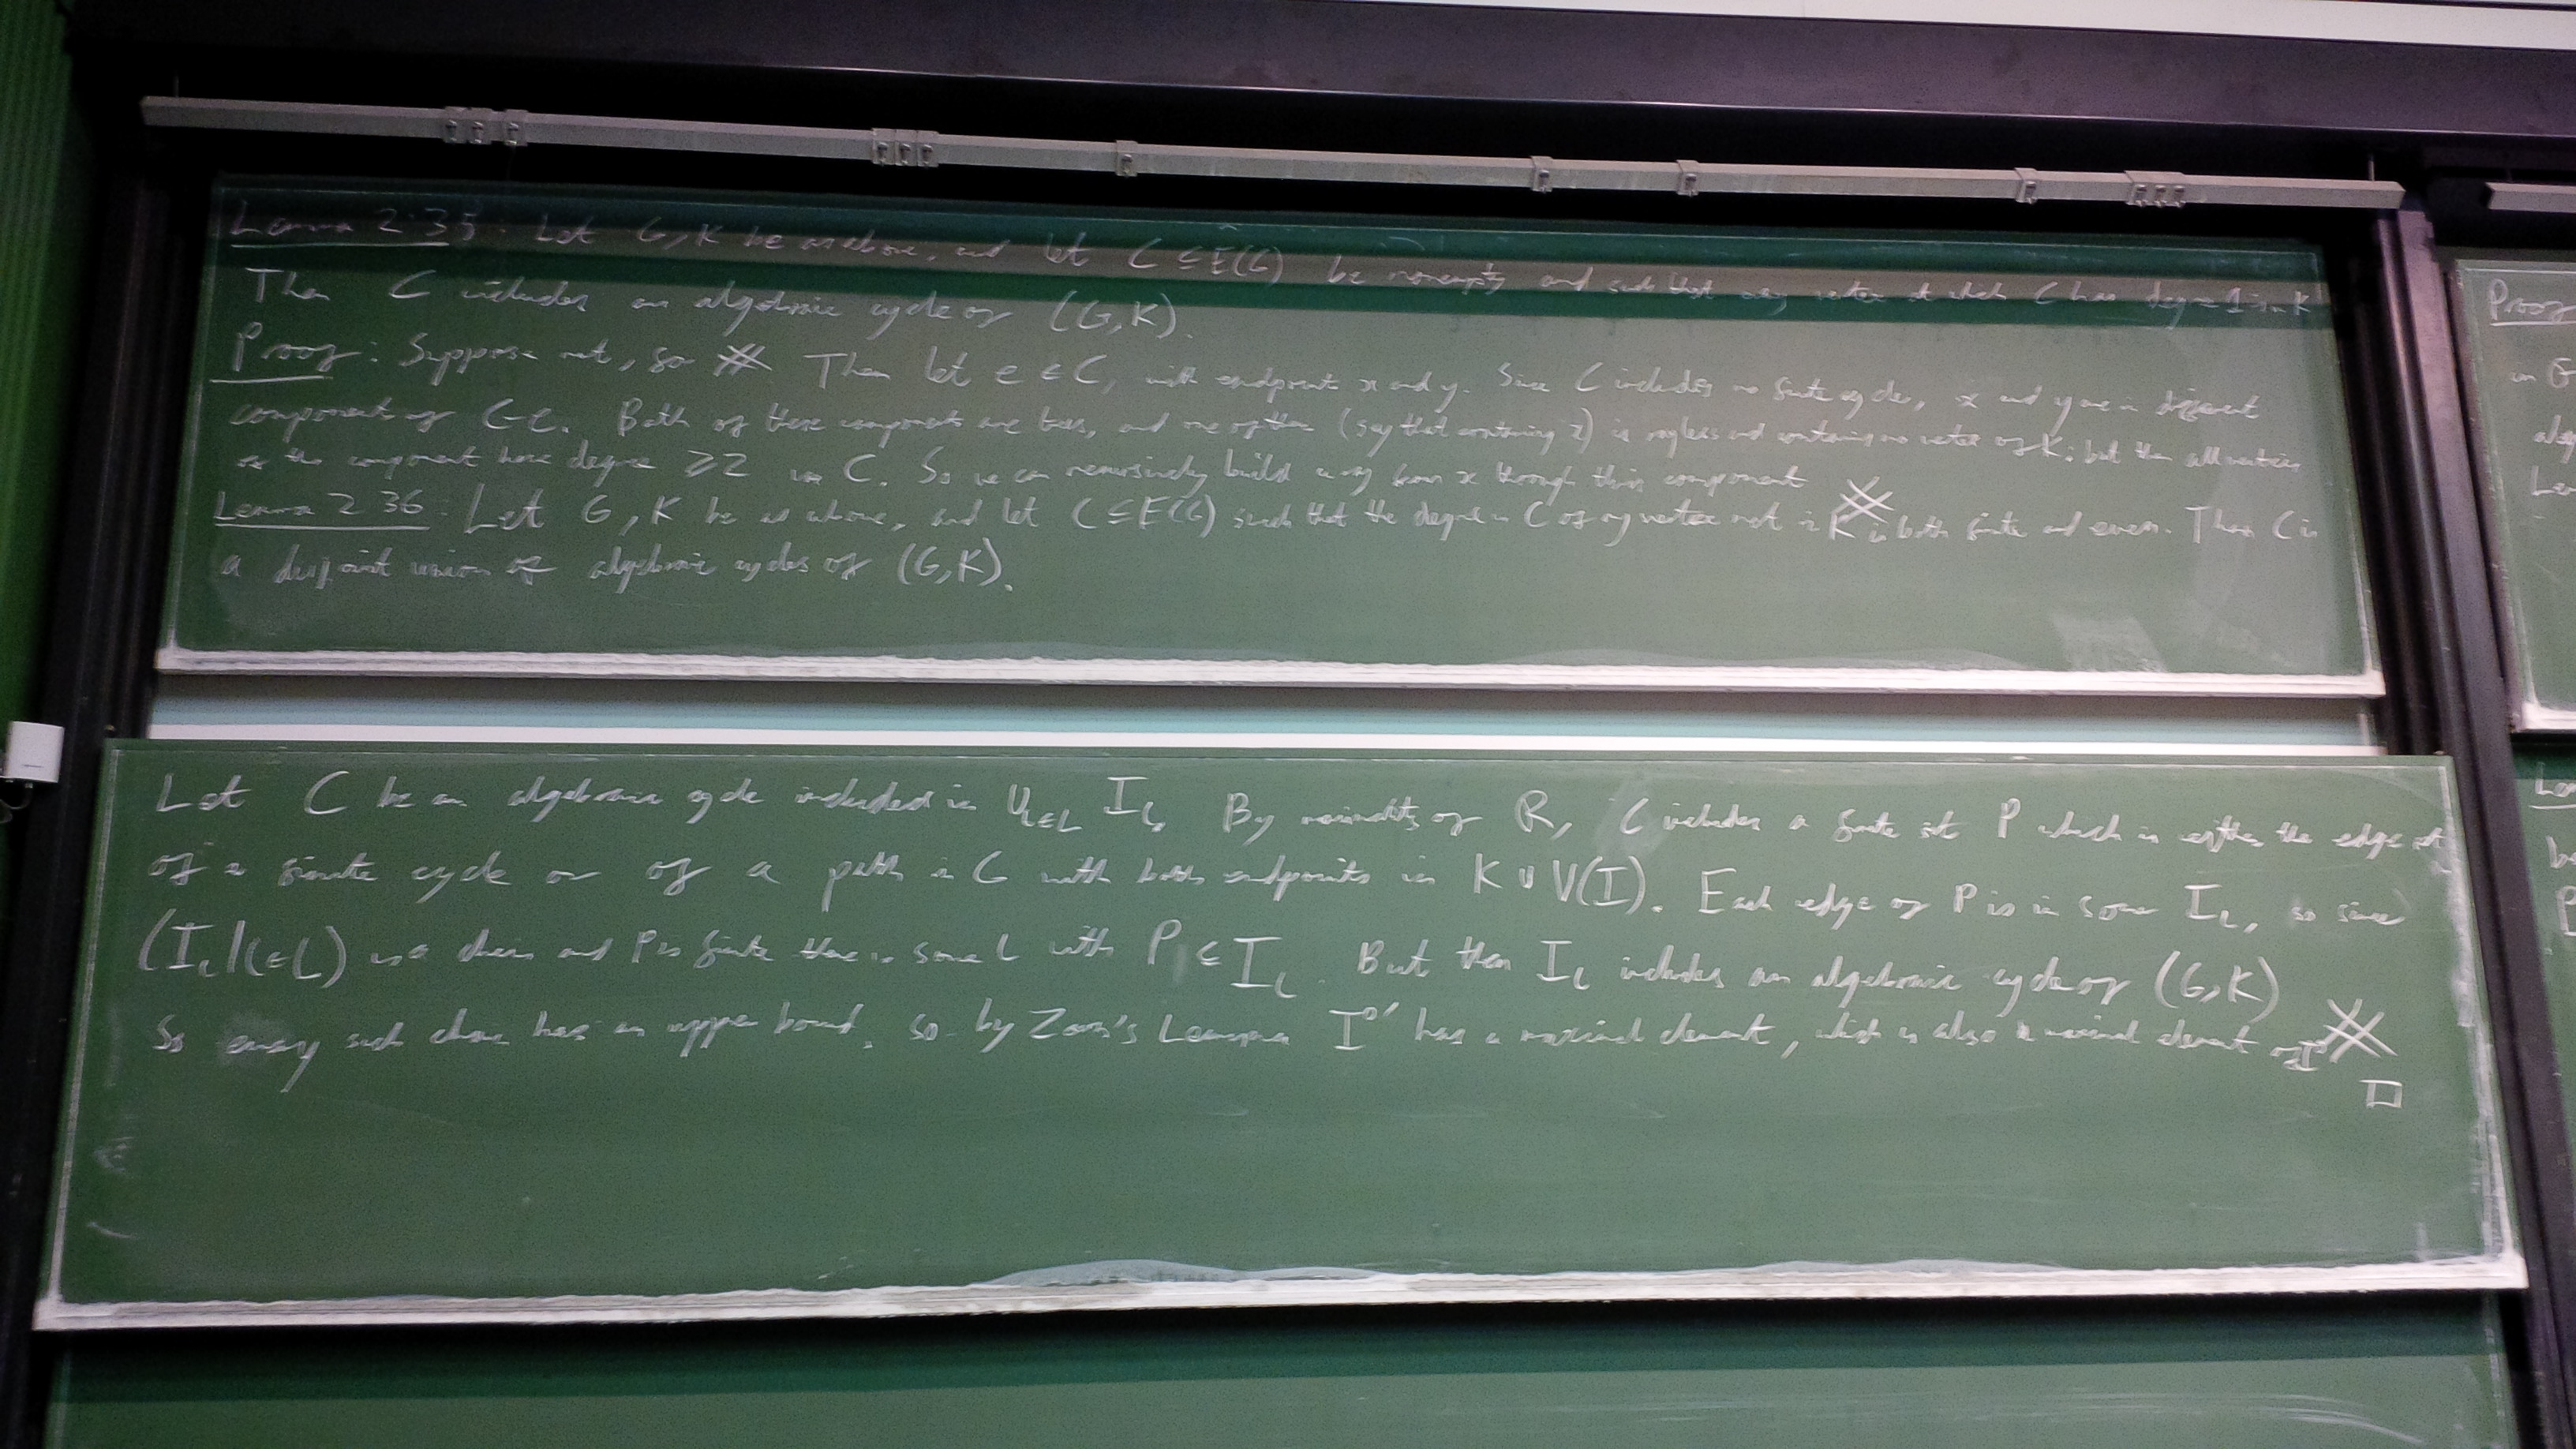 Lemma 2.35: Let G, K be as above, and let C ⊆ E(G) be nonempty and such that any vertex at which C has degree 1 is in K
Then C includes an algebraic cycle of (G,K).
Proof: Suppose not, for ※ Then let e ∈ C, with endpoints x and y. Since C includes no finite cycle, x and y are in different
components of C-e. Both of these components are trees, and one of them (say that containing x) is rayless and contains no vertex of K; but then all vertices
of this component have degree ≥2 in C. So we can recursively build a ray from x through this component ※
Lemma 2.36: Let G, K be as above, and let C ⊆ E(G) such that the degree in C of any vertex not in K is both finite and even. Then C is
a disjoint union of algebraic cycles of (G,K).
Let C be an algebraic cycle included in ∪_{l∈L} I_l. By minimality of R, C includes a finite set P which is either the edge set
of a finite cycle or of a path in G with both endpoints in K ∪ V(I). Each edge of P is in some I_l, so since
(I_l | l∈L) is a chain and P is finite there is some l with P ⊆ I_l. But then I_l includes an algebraic cycle of (G,K) ※
So every such chain has an upper bound, so by Zorn's Lemma I°' has a maximal element, which is also a maximal element of I°
□
Proof
in G
alg
Le
Le
b
P